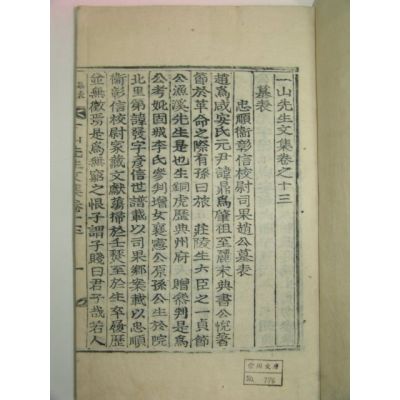 一山先生文集卷之十三
墓表
忠順衞彰信校尉司果趙公墓表
趙爲咸安氏元尹諱鼎爲肇祖至麗末典書公悅著
節於革命之際有孫曰旅 莊陵生六臣之一貞節
公漁溪先生是也生銅虎歷典州府 贈參判是爲
公考妣固城李氏參判增女襄憲公原孫公生於院
北里第諱發字彦信世譜載以司果鄕案載以忠順
衞彰信校尉家藏文獻蕩掃於壬燹至於生卒履歷
並無徵焉是爲無窮之恨子謂子賤曰君子哉若人
墓表
一山先生文集卷十三
一
NO. 776